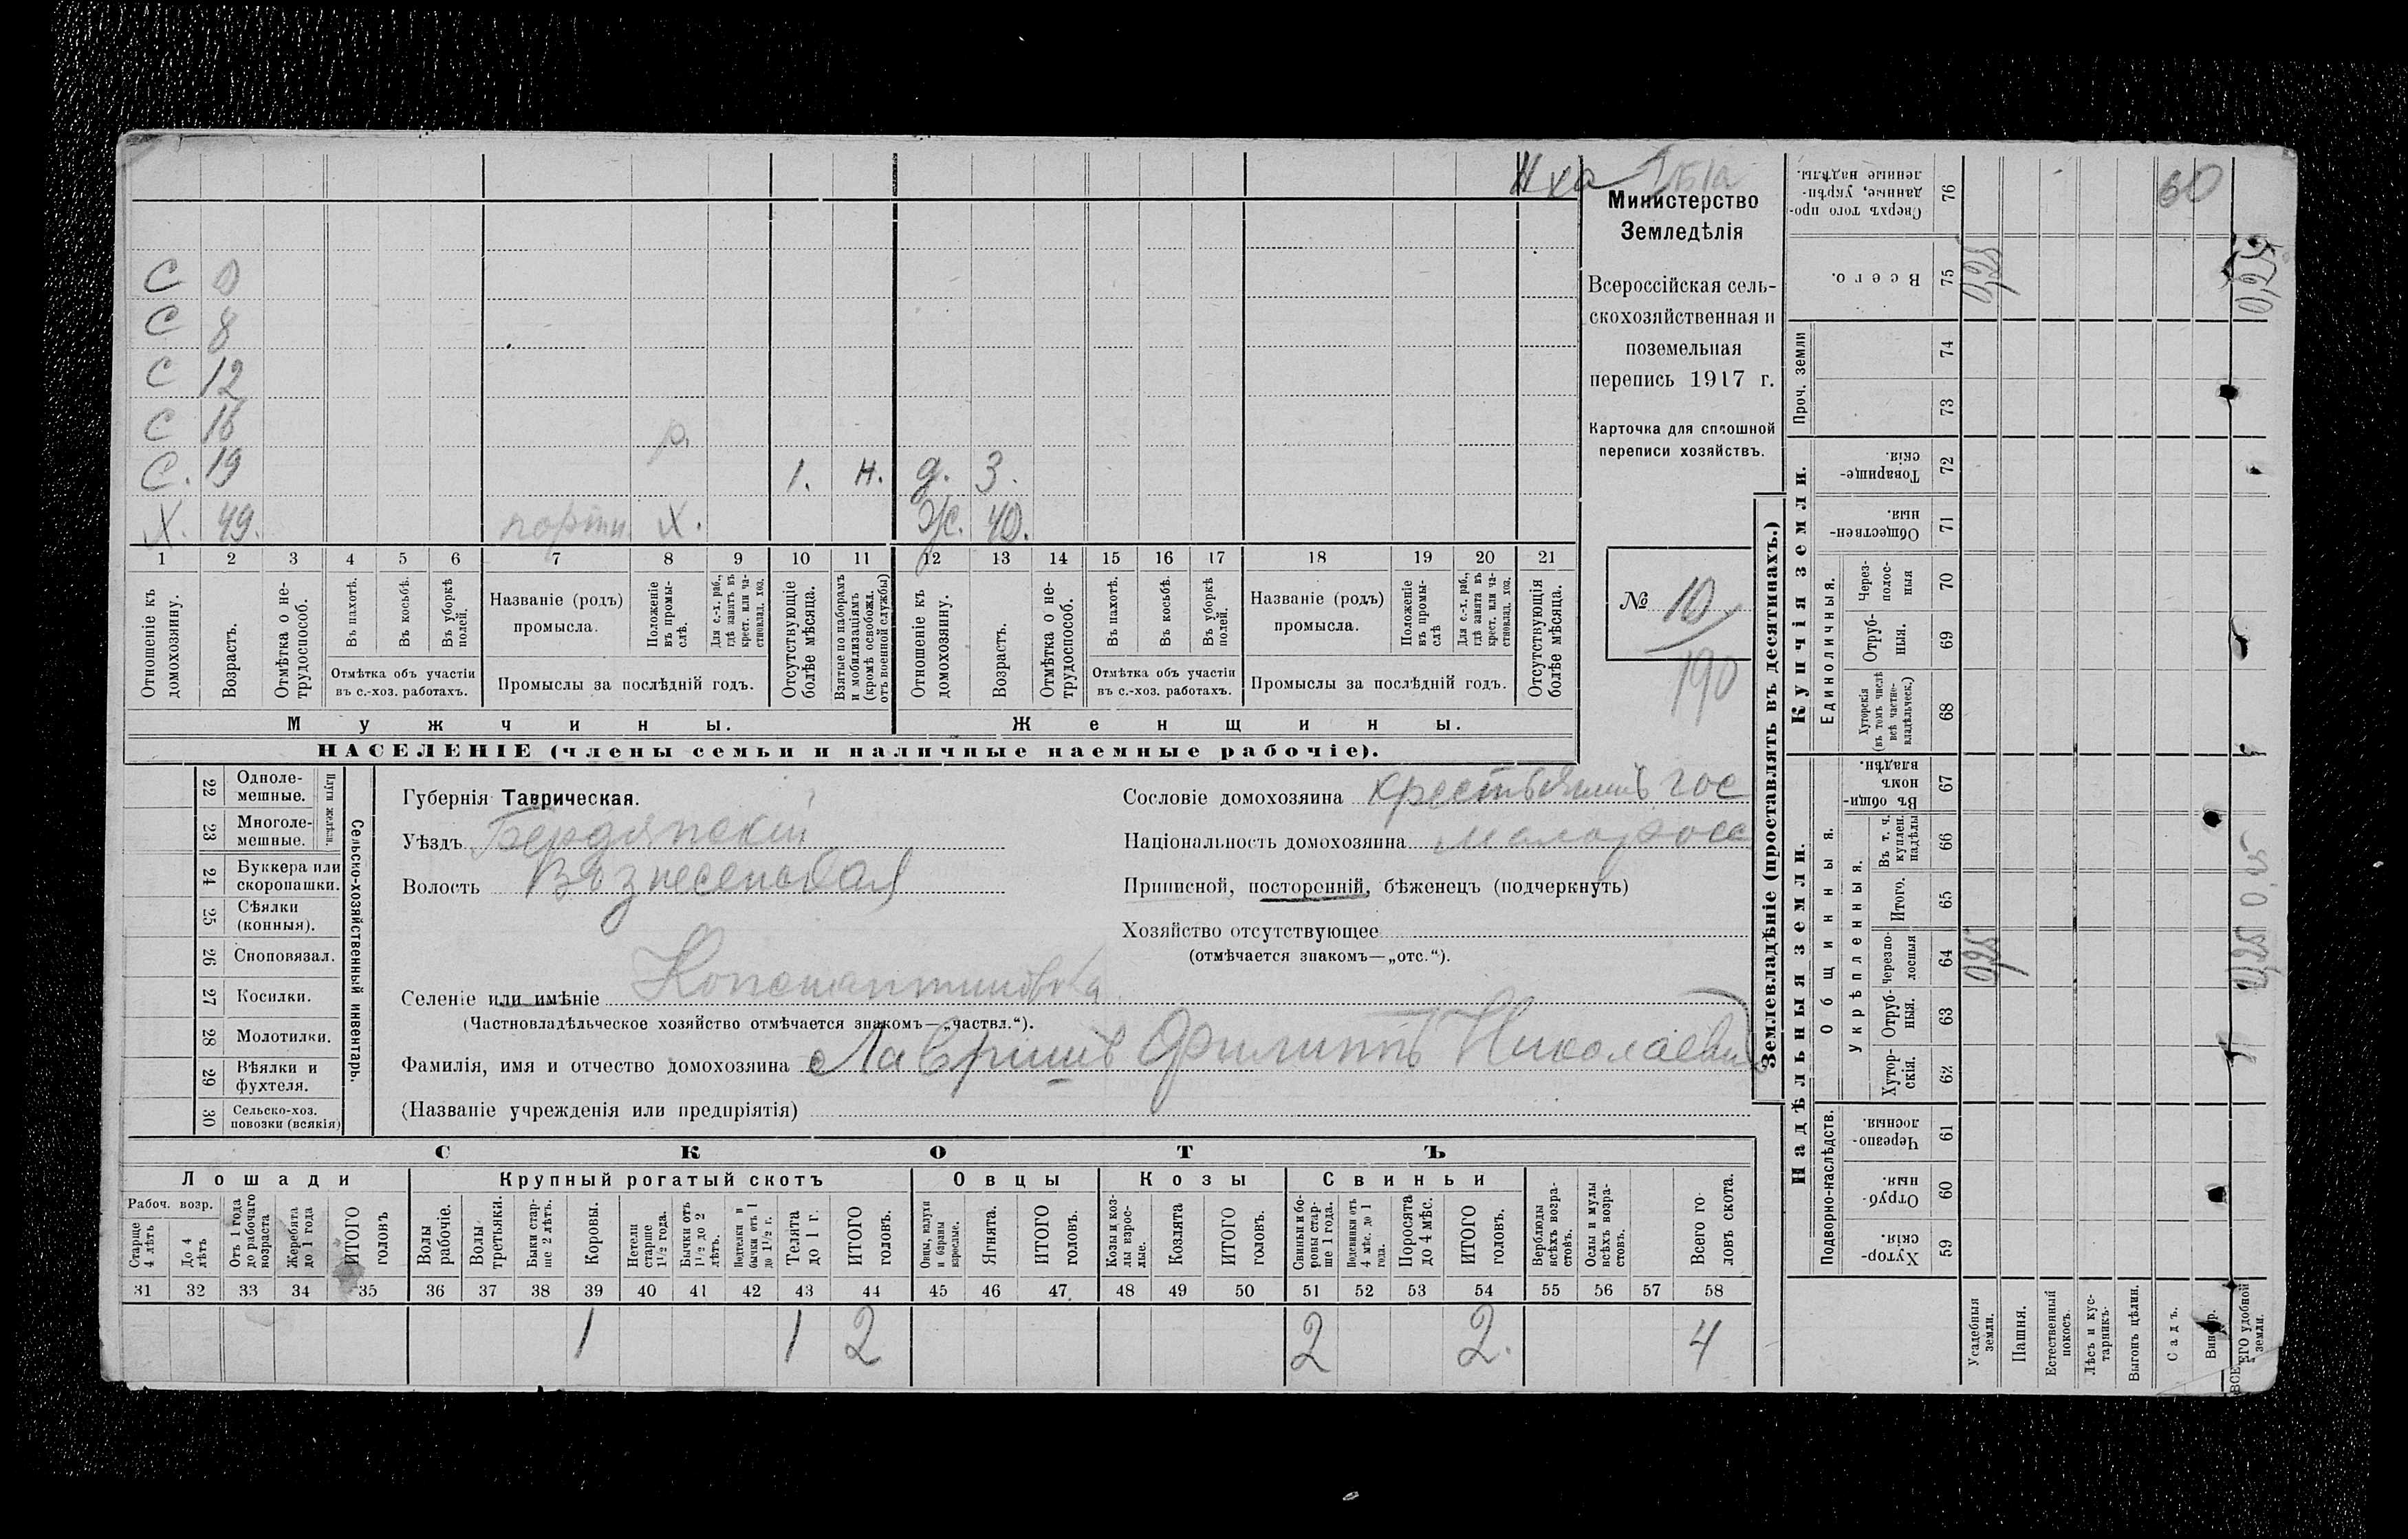 Министерство
Земледѣлія
Всероссійская сель-
скохозяйственная и
поземельная
перепись 1917 г.
Карточка для сплошной
переписи хозяйствъ.
№ 10
190
С
С 8
С 12
С 16
р.
С. 19 1. н. д. 3.
Х. 49. портн. Х. Ж. 40.
1 2 3 4 5 6 7 8 9 10 11 12 13 14 15 16 17 18 19 20 21
Отношеніе къ домохозяину.
Возрастъ.
Отмѣтка о не-трудоспособ.
Въ пахотѣ.
Въ косьбѣ.
Въ уборкѣ полей.
Отмѣтка объ участіи въ с.-хоз. работахъ.
Названіе (родъ) промысла.
Положеніе въ промы-слѣ.
Для с.-х. раб., гдѣ занятъ въ крест. или ча-стновлад. хоз.
Промыслы за послѣдній годъ.
Отсутствующіе болѣе мѣсяца.
Взятые по наборамъ и мобилизаціямъ (кромѣ освобожд. отъ военной службы)
Отношеніе къ домохозяину.
Возрастъ.
Отмѣтка о не-трудоспособ.
Въ пахотѣ.
Въ косьбѣ.
Въ уборкѣ полей.
Отмѣтка объ участіи въ с.-хоз. работахъ.
Названіе (родъ) промысла.
Положеніе въ промы-слѣ
Для с.-х. раб., гдѣ занята въ крест. или ча-стновлад. хоз.
Промыслы за послѣдній годъ.
Отсутствующія болѣе мѣсяца.
Мужчины. Женщины.
НАСЕЛЕНІЕ (члены семьи и наличные наемные рабочіе).
22 Одноле-мешные.
23 Многоле-мешные.
Плуги желѣзн.
24 Буккера или скоропашки.
25 Сѣялки (конныя).
26 Сноповязал.
27 Косилки.
28 Молотилки.
29 Вѣялки и фухтеля.
30 Сельско-хоз. повозки (всякія)
Сельско-хозяйственный инвентарь.
Губернія Таврическая.
Уѣздъ Бердянскій
Волость Вознесенская
Сословіе домохозяина крестьянинъ гос
Національность домохозяина малоросс
Приписной, посторонній, бѣженецъ (подчеркнуть)
Хозяйство отсутствующее
(отмѣчается знакомъ—„отс.“).
Селеніе или имѣніе Константиновка
(Частновладѣльческое хозяйство отмѣчается знакомъ—„частвл.“).
Фамилія, имя и отчество домохозяина Лавришъ Филиппъ Николаевич
(Названіе учрежденія или предпріятія)
СКОТЪ
Лошади Крупный рогатый скотъ Овцы Козы Свиньи
Рабоч. возр.
Старше 4 лѣтъ
До 4 лѣтъ
Отъ 1 года до рабочаго возраста
Жеребята до 1 года
ИТОГО головъ
Волы рабочіе.
Волы третьяки.
Быки стар-ше 2 лѣтъ.
Коровы.
Нетели старше 1½ года.
Бычки отъ 1½ до 2 лѣтъ.
Подтелки и бычки отъ 1 до 1½ г.
Телята до 1 г.
ИТОГО головъ.
Овцы, валухи и бараны взрослые.
Ягнята.
ИТОГО головъ.
Козы и коз-лы взрос-лые.
Козлята
ИТОГО головъ.
Свиньи и бо-ровы стар-ше 1 года.
Подсвинки отъ 4 мѣс. до 1 года.
Поросята до 4 мѣс.
ИТОГО головъ.
Верблюды всѣхъ возра-стовъ.
Ослы и мулы всѣхъ возра-стовъ.
Всего го-ловъ скота.
31 32 33 34 35 36 37 38 39 40 41 42 43 44 45 46 47 48 49 50 51 52 53 54 55 56 57 58
1 1 2 2 2. 4
Землевладѣніе (проставлять въ десятинахъ.)
Купчія земли.
Надѣльныя земли.
Сверхъ того про-данные, укрѣп-ленные надѣлы. 76
60
Всего. 75
0,25
0,25
Проч. земли 74
73
Товарище-скія. 72
Обществен-ныя. 71
Единоличныя.
Через-полос-ныя 70
Отруб-ныя. 69
Хуторскія (въ томъ числѣ всѣ частно-владѣльческ.) 68
Общинныя.
Въ общи-номъ владѣн. 67
Укрѣпленныя.
Въ т. ч. куплен. надѣлы 66
Итого. 65
Черезпо-лосныя 64
0,25
0,25
Отруб-ныя. 63
Хутор-скія. 62
Подворно-наслѣдств.
Черезпо-лосныя. 61
Отруб-ныя. 60
Хутор-скія. 59
Усадебныя земли.
Пашня.
Естественный покосъ.
Лѣсъ и кус-тарникъ.
Выгонъ цѣлин.
Садъ.
ВСЕГО удобной земли.